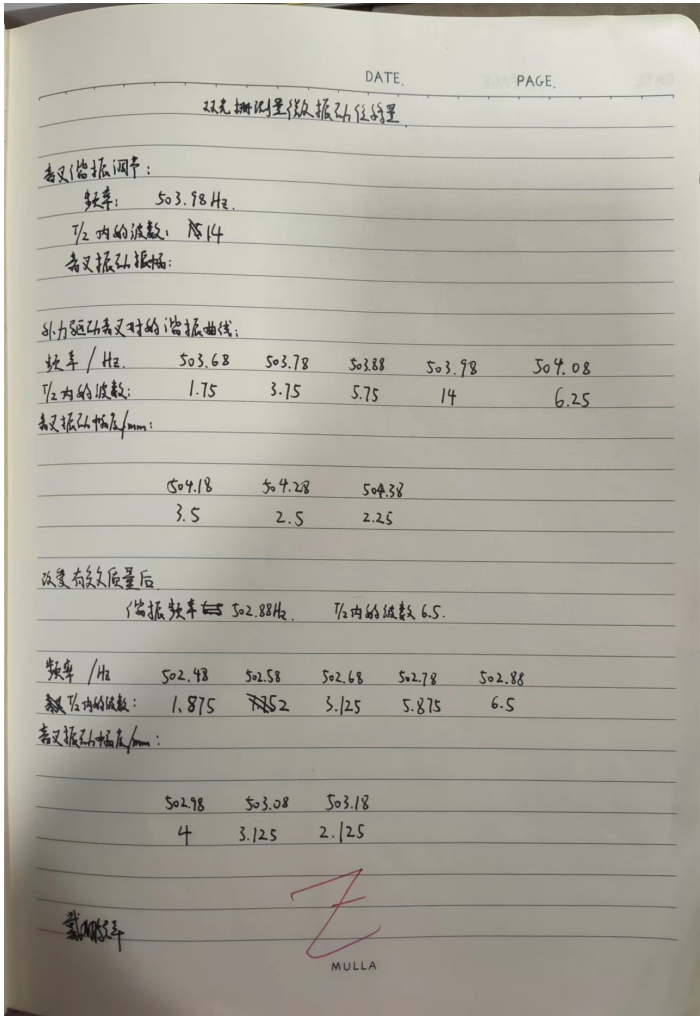 DATE. PAGE.
双光栅测量微振动位移量
音叉谐振调节:
频率: 503.98 Hz.
T/2 内的波数: 14
音叉振动振幅:
外力驱动音叉时的谐振曲线:
频率 / Hz. 503.68 503.78 503.88 503.98 504.08
T/2 内的波数: 1.75 3.75 5.75 14 6.25
音叉振动幅度/mm:
504.18 504.28 504.38
3.5 2.5 2.25
改变有效质量后
谐振频率 502.88Hz. T/2内的波数 6.5.
频率 /Hz 502.48 502.58 502.68 502.78 502.88
T/2内的波数: 1.875 2 3.125 5.875 6.5
音叉振动幅度/mm:
502.98 503.08 503.18
4 3.125 2.125
MULLA